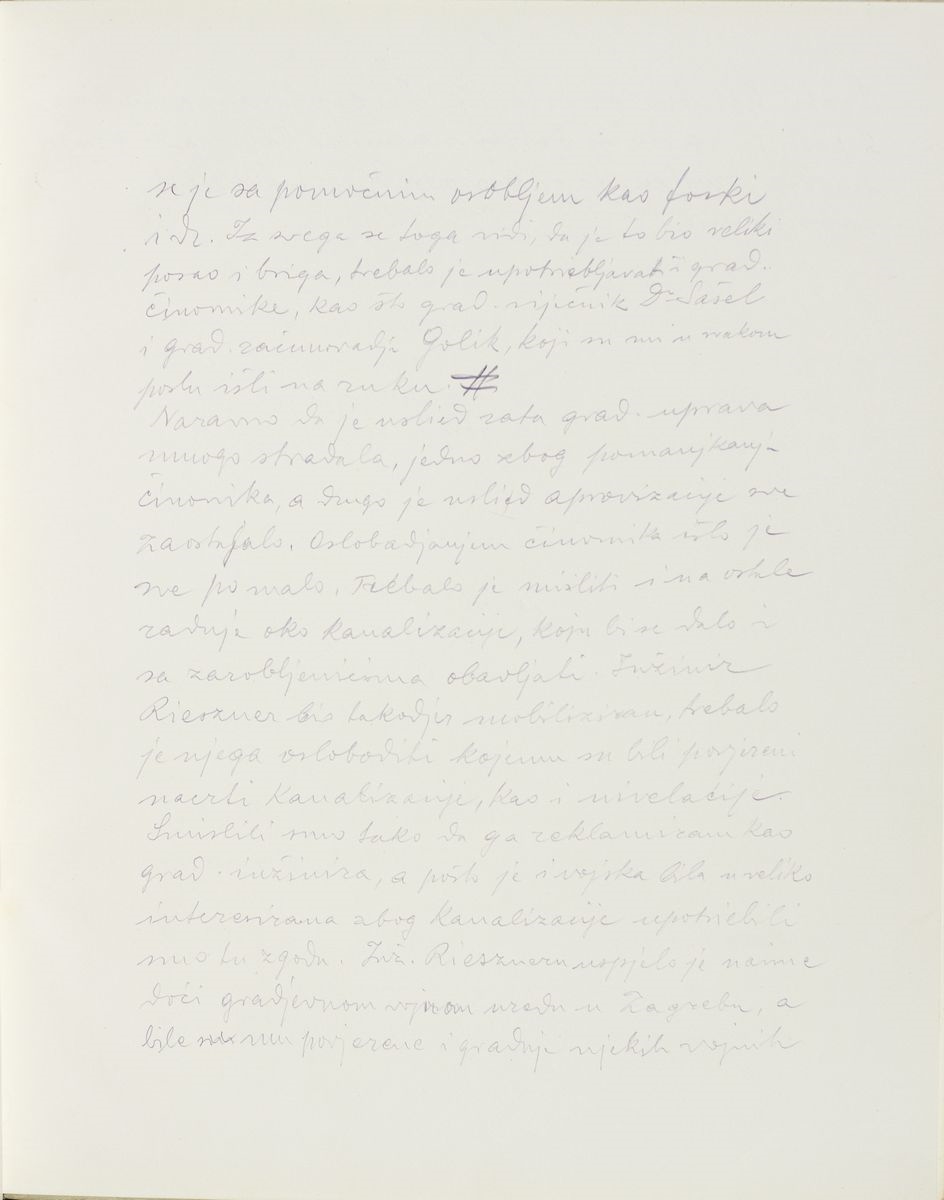 se je sa pomoćnim osobljem kao Foski
i dr. Iz svega se toga vidi, da je to bio veliki
posao i briga, trebalo je upotriebljavati i grad.
činovnike, kao što grad. vijećnik Dr Šašel
i grad. računovodja Golik, koji su mi u svakom
poslu išli na ruku. #
Naravno da je uslied rata grad. uprava
mnogo stradala, jedno zbog pomanjkanja
činovnika, a drugo je uslied aprovizacije sve
zaostajalo. Oslobadjanjem činovnika išlo je
sve pomalo. Trebalo je misliti i na ostale
radnje oko kanalizacije, koju bi se dalo i
sa zarobljenicima obavljati. Inžinir
Rieszner bio takodjer mobiliziran, trebalo
je njega osloboditi kojemu su bili povjereni
nacrti Kanalizacije, kao i nivelacije.
Smislili smo tako da ga reklamiram kao
grad. inžinira, a pošto je i vojska bila u veliko
interesirana zbog Kanalizacije upotriebili
smo tu zgodu. Inž. Rieszneru uspjelo je naime
doći gradjevnom vojnom uredu u Zagrebu, a
bile mu povjerene i gradnje njekih vojnih